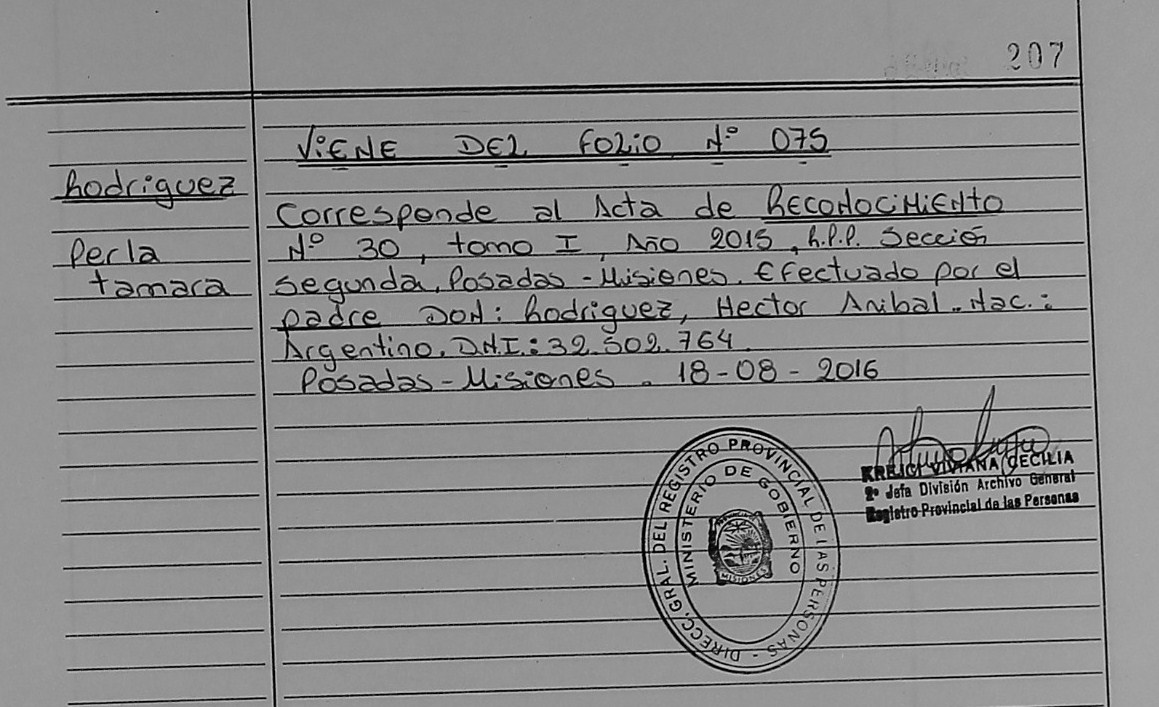 207
ViENE DEL FOLiO Nº 075
Rodriguez
Perla
tamara
Corresponde al Acta de RECONOCiMiENto
Nº 30, tomo I, Año 2015, R.P.P. Sección
Segunda, Posadas - Misiones. Efectuado por el
padre DON: Rodriguez, Hector Anibal. Nac.:
Argentino. D.N.I.: 32.502.764.
Posadas - Misiones. 18-08-2016
KREJCI VIVIANA CECILIA
2º Jefa División Archivo General
Registro Provincial de las Personas
DIRECC. GRAL. DEL REGISTRO PROVINCIAL DE LAS PERSONAS -
MINISTERIO DE GOBIERNO
MISIONES